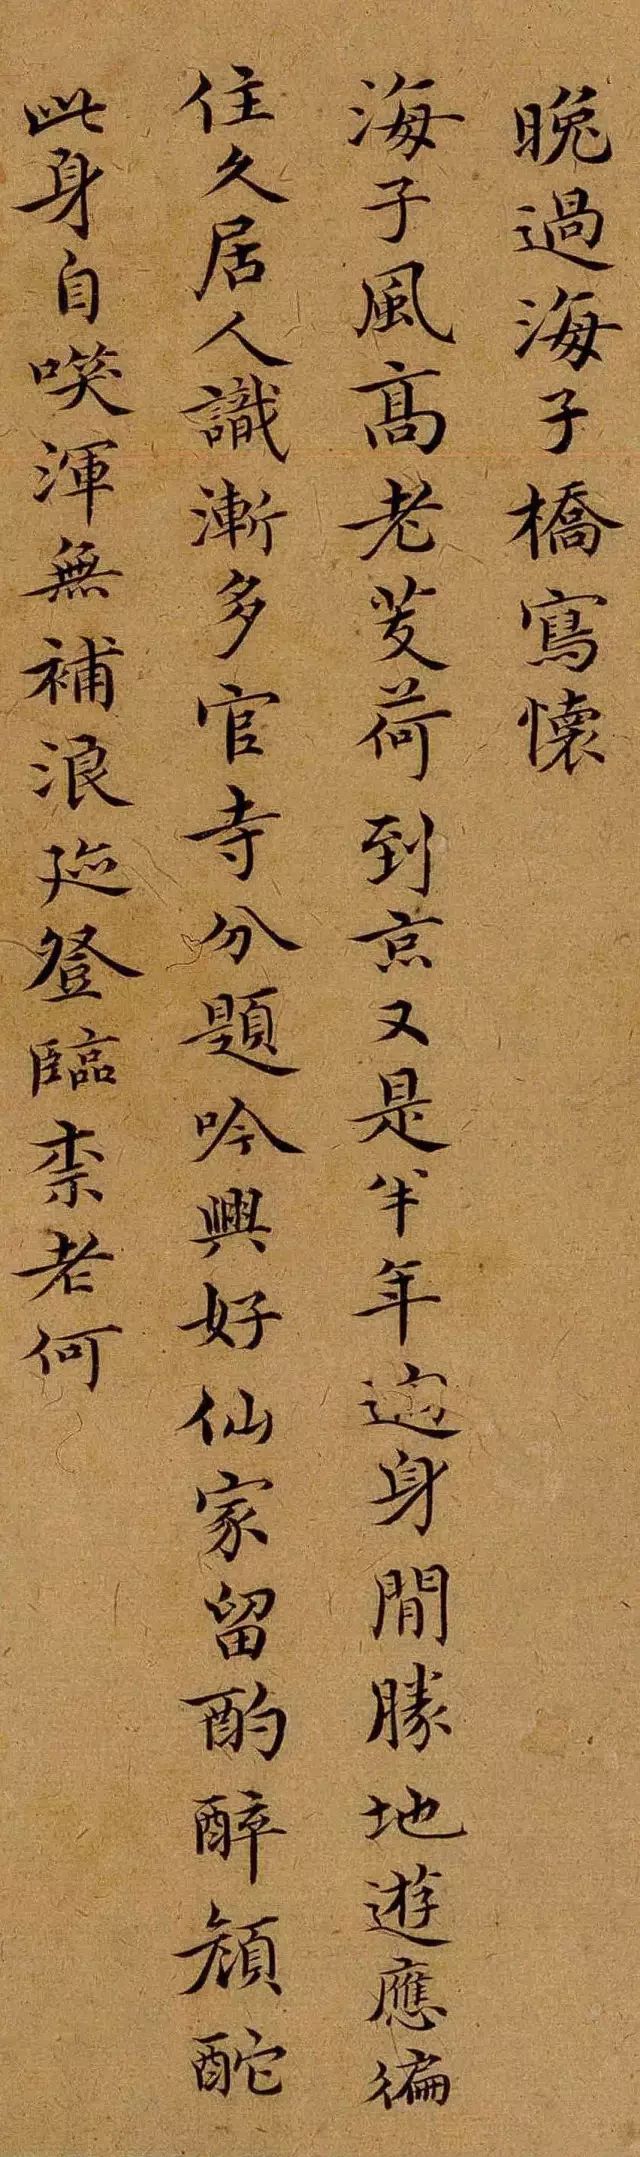 晚過海子橋寫懷
海子風高老芰荷到京又是半年過身閒勝地遊應徧
住久居人識漸多官寺分題吟興好仙家留酌醉顏酡
此身自咲渾無補浪跡登臨柰老何